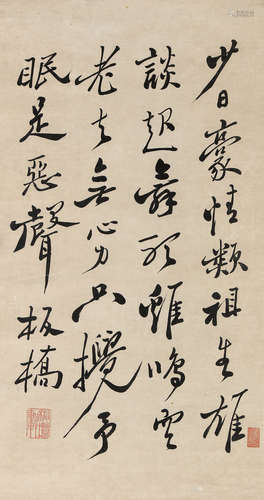 少日豪情類祖生雄
談起舞聽雞鳴雲
老去無心力只攪予
眠是惡聲 板橋